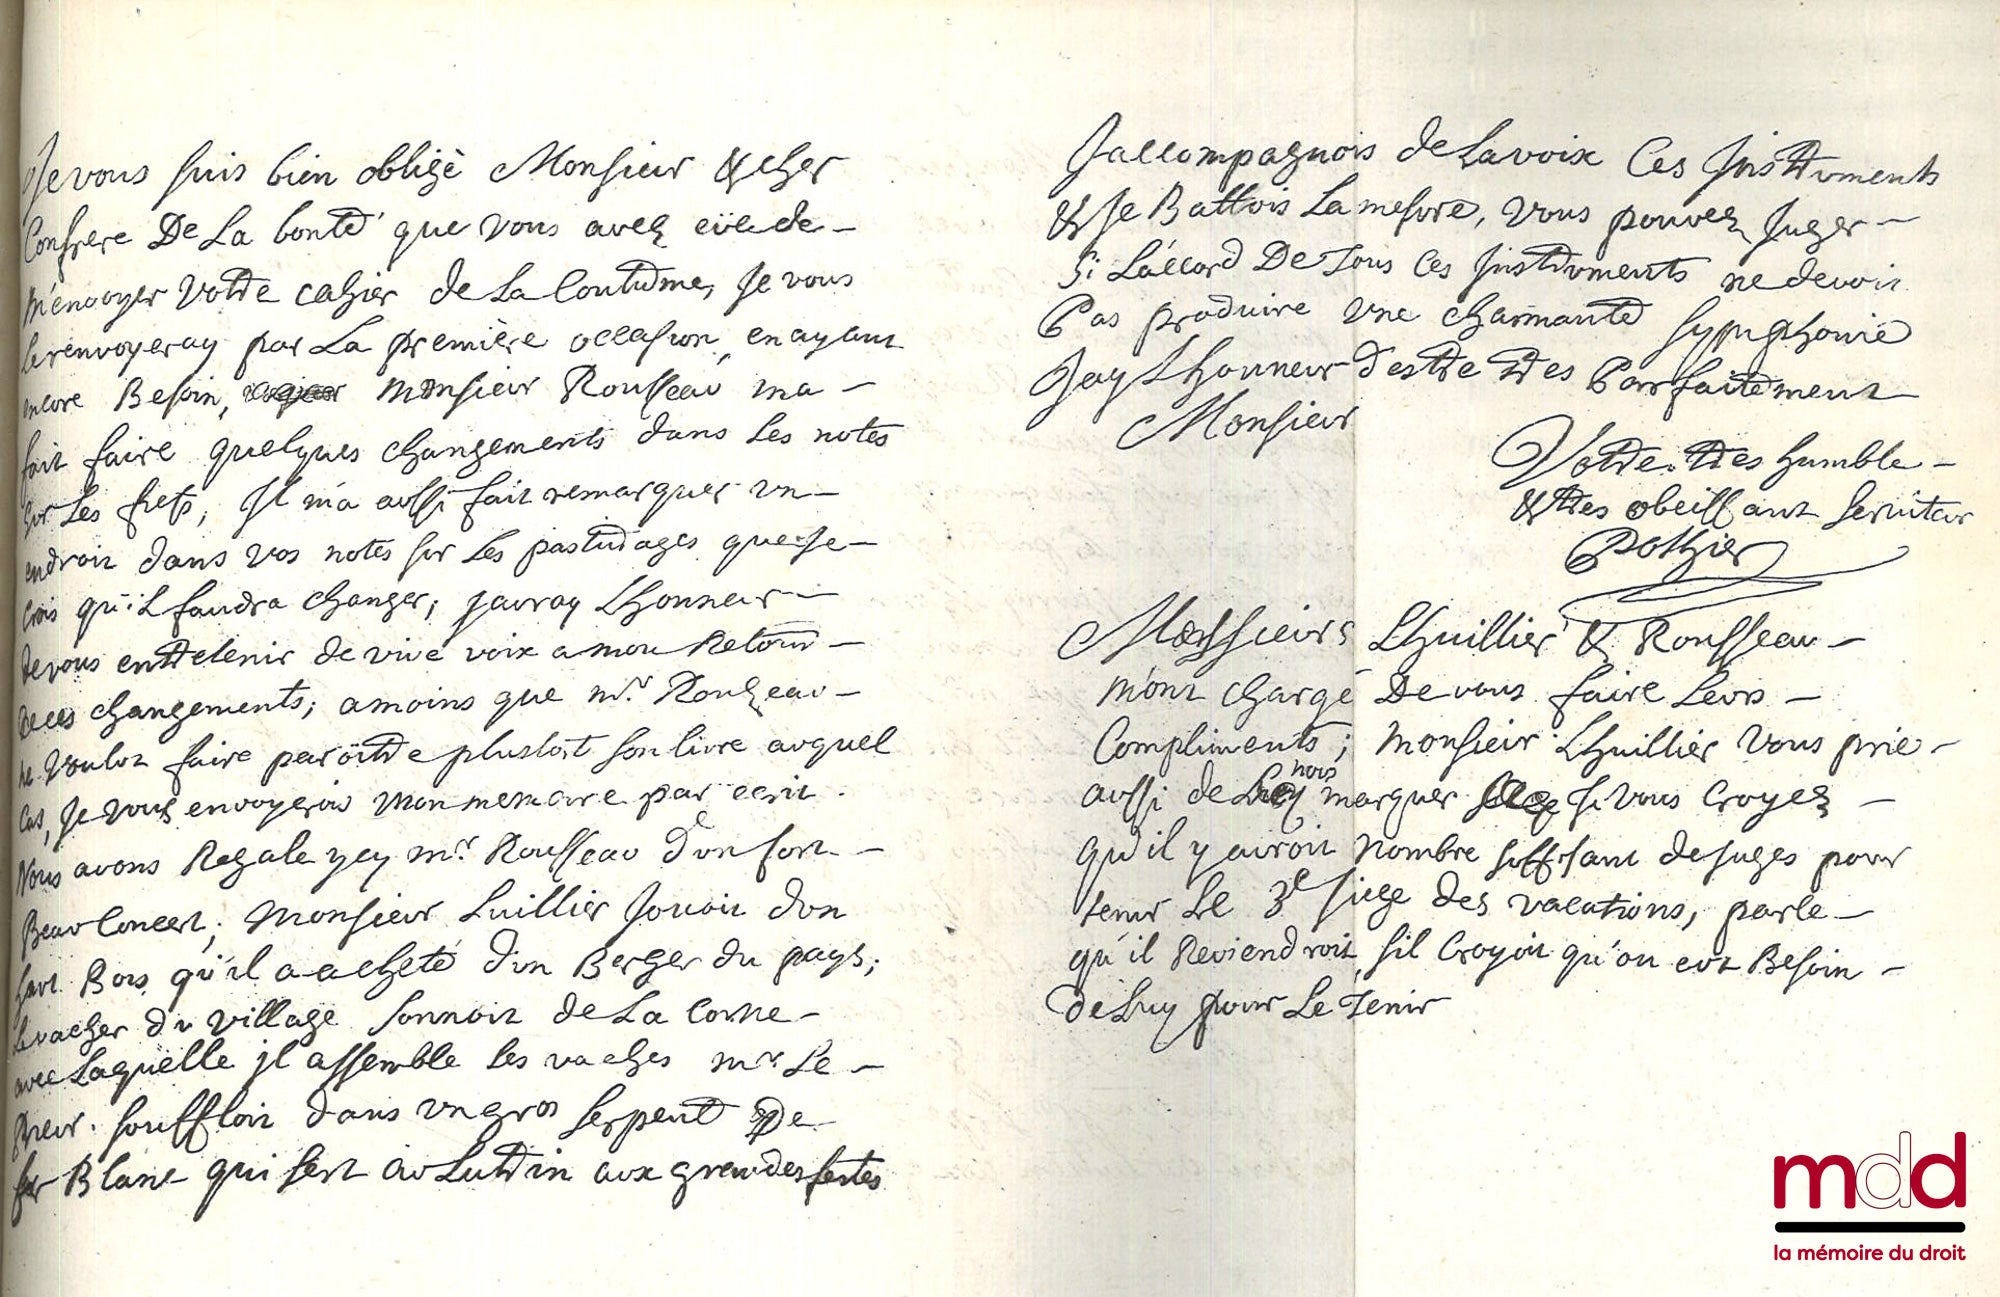 Je vous suis bien obligé Monsieur & cher
Confrere De La bonté que vous avez eüe de
m'envoyer votre cahier de La Coutume, Je vous
le renvoyeray par La première occasion, en ayant
encore Besoin, Monsieur Rousseau ma
fait faire quelques changements dans Les notes
sur Les fiefs, Il m'a aussi fait remarquer un
endroit dans vos notes sur Les pasturages que je
crois qu'il faudra changer, jauray Lhonneur
de vous entretenir de vive voix a mon Retour
de ces changements; a moins que mr. Rousseau
ne voulut faire paroitre plustost son livre auquel
cas, Je vous envoyerois mon memoire par ecrit.
Nous avons Regale ycy mr. Rousseau d'un fort
Beau Concert; Monsieur Luillier Jouoit d'un
haut Bois qu'il a acheté d'un Berger du pays;
Le vacher du village sonnoit de La Corne
avec Laquelle jl assemble Les vaches mr. Le
prieur souffloit dans un gros serpent De
fer Blanc qui sert au Lutrin aux grandes festes
Jaccompagnois de La voix Ces Instruments
& Je Battois La mesure, vous pouvez Juger
Si L'accord De Tous Ces Instruments ne devoit
Pas produire une charmante symphonie
Jay Lhonneur d'estre tres Parfaitement
Monsieur
Votre tres humble
& tres obeissant serviteur
Pothier
Messieurs Lhuillier & Rousseau
m'ont chargé De vous faire Leurs
Compliments; Monsieur Lhuillier vous prie
aussi de nous marquer si vous croyez
qu'il y auroit nombre suffisant de juges pour
tenir Le 3e siege des vacations, parce
qu'il Reviendroit, s'il Croyoit qu'on eut Besoin
de Luy pour Le Tenir
mdd
la mémoire du droit